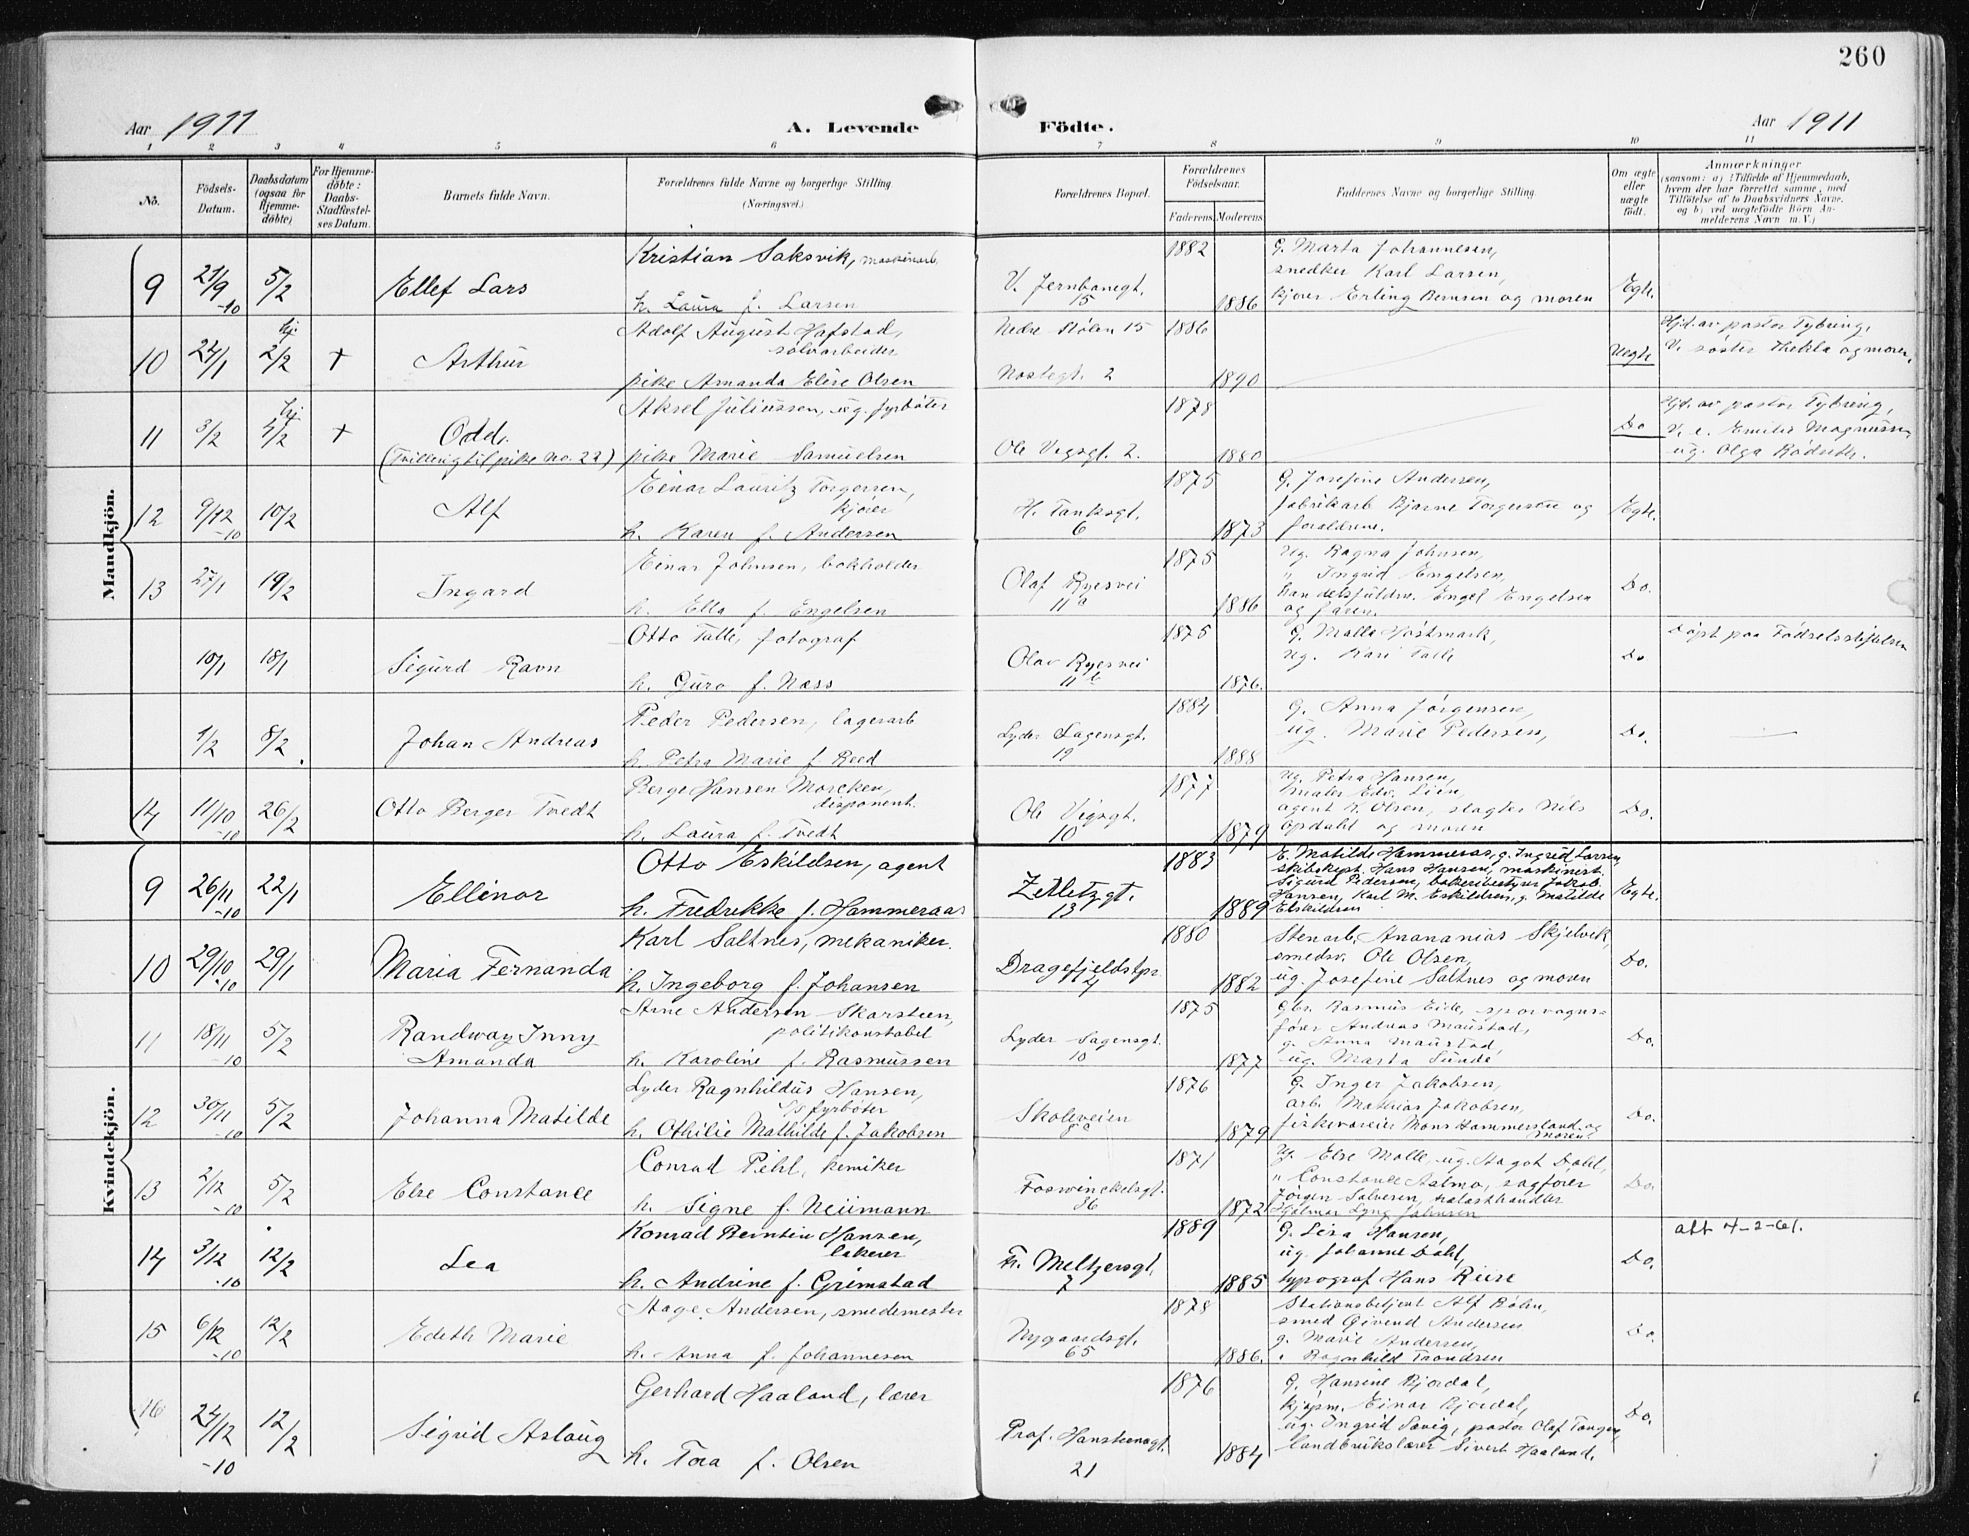 260
Aar 1911
A. Levende
Födte.
Aar 1911
1 2 3 4 5 6 7 8 9 10 11
No.
Födsels-
Datum.
Daabsdatum
(ogsaa for
Hjemme-
döbte)
For Hjemme-
döbte:
Daabs-
Stadfæstel-
ses Datum.
Barnets fulde Navn.
Forældrenes fulde Navne og borgerlige Stilling
(Næringsvei.)
Forældrenes Bopæl.
Forældrenes
Födselsaar.
Faderens Moderens
Faddernes Navne og borgerlige Stilling.
Om ægte
eller
uægte
födt.
Anmærkninger
(saasom: a) i Tilfælde af Hjemmedaab,
hvem der har forrettet samme, med
Tilföielse af to Daabsvidners Navne.
og b) ved uægtefödte Börn An-
melderens Navn m. V.)
Mandkjön.
9 21/9 -10 5/2
Ellef Lars
Kristian Saksvik, maskinarb.
h. Laura f. Larsen
V. Jernbanegt.
15
1882 1886
G. Marta Johannesen,
snedker Karl Larsen,
kjører Erling Berntsen og moren
Egte.
10 24/1 hj. 2/2 +
Arthur
Adolf August Hafstad,
sølvarbeider
pike Amanda Elise Olsen
Nedre Stølen 15
Nostegt. 2
1886 1890
Uegte
Hjd. av pastor Tybring,
V. søster Thekla og moren.
11 3/2 hj. 4/2 +
Odd.
(Tvilling til pike no. 22)
Aksel Juliussen, ug. fyrbøter
pike Marie Samuelsen
Ole Vigsgt. 2.
1878 1880
Do
Hjd. av pastor Tybring,
V. e. Emilie Magnussen
ug. Olga Rødseth.
12 9/12 -10 10/2
Alf
Einar Lauritz Torgersen,
kjører
h. Karen f. Andersen
H. Tanksgt.
6
1875 1873
G. Josefine Andersen,
fabrikarb Bjarne Torgersen og
forældrene.
Egte.
13 27/1 19/2
Ingard
Einar Johnsen, bokholder
h. Ella f. Engelsen
Olaf Ryesvei
11a
1875 1886
Ug. Ragna Johnsen,
" Ingrid Engelsen,
handelsfuldm. Engel Engelsen
og faren.
Do.
10/1 18/1
Sigurd Ravn
Otto Talle, fotograf
h. Guro f. Næss
Olav Ryesvei
11b
1875 1876.
G. Malla Høstmark,
Ug. Kari Talle
Do
Døpt paa Fødselsstiftelsen
1/2 8/2
Johan Andreas
Peder Pedersen, lagerarb
h. Petra Marie f. Reed
Lyder Sagensgt.
19
1884 1888
G. Anna Jørgensen,
ug. Marie Pedersen,
Do.
14 11/10 -10 26/2
Otto Berger Tvedt
Berge Hansen Morcken,
disponent.
h. Laura f. Tvedt
Ole Vigsgt.
10
1877 1879
Ug. Petra Hansen,
maler Edv. Lien,
agent V. Olsen, slagter Nils
Opdahl og moren
Do.
Kvindekjön.
9 26/11 -10 22/1
Ellinor
Otto Eskildsen, agent
h. Fredrikke f. Hammeraas
Zetlitzgt.
13
1883 1889
E. Matilde Hammeraas, g. Ingrid Larsen,
skibskapt. Hans Hansen, maskinist
Sigurd Pedersen, bakeribestyrer Jakob
Hansen, Karl M. Eskildsen, g. Matilde
Eskildsen
Egte.
10 29/10 -10 29/1
Maria Fernanda
Karl Saltnes, mekaniker.
h. Ingeborg f. Johansen
Dragefjeldstpr.
4
1880 1882
Stenarb. Ananias Skjelvik,
smedsv. Ole Olsen,
ug. Josefine Saltnes og moren
Do.
11 18/11 -10 5/2
Randway Inny
Amanda
Arne Andersen Skarstein,
politikonstabel
h. Karoline f. Rasmussen
Lyder Sagensgt.
10
1875 1877
Gbr. Rasmus Eide, sporvogns-
fører Andreas Maustad,
g. Anna Maustad,
ug. Marta Sunde
Do.
12 30/11 -10 5/2
Johanna Matilde
Lyder Ragnhildus Hansen,
s/s fyrbøter
h. Othilie Mathilde f. Jakobsen
Skoleveien
8a
1876 1879
G. Inger Jakobsen,
arb. Mathias Jakobsen,
fiskevæier Mons Hammersland og
moren
Do.
13 2/12 -10 5/2
Else Constance
Conrad Pihl, kemiker
h. Signe f. Neumann
Foswinckelsgt.
36
1871 1872
Ug. Else Malle, ug. Aagot Dahl,
" Constance Aalmo, sagfører
Jørgen Salvesen, trælasthandler
Hjalmar Lyng Johnsen
Do.
14 3/12 -10 12/2
Lea
Konrad Berntin Hansen,
lakerer
h. Andrine f. Grimstad
Fr. Meltzersgt.
7
1889 1885
G. Lisa Hansen,
ug. Johanne Dahl,
typograf Hans Reise
Do.
att 4-2-61.
15 6/12 -10 12/2
Edith Marie
Aage Andersen, smedemester
h. Anna f. Johannesen
Nygaardsgt.
65
1878 1886.
Stationsbetjent Alf Bøhn,
smed Eivend Andersen
g. Marie Andersen,
" Ragnhild Trondsen
Do.
16 24/12 -10 12/2
Sigrid Aslaug
Gerhard Haaland, lærer
h. Tora f. Olsen
Prof. Hansteensgt.
21
1876 1884
G. Hansine Bjordal,
kjøpm. Einar Bjordal,
ug. Ingrid Sævig, pastor Olaf Tangen,
landbrukslærer Sivert Haaland.
Do.